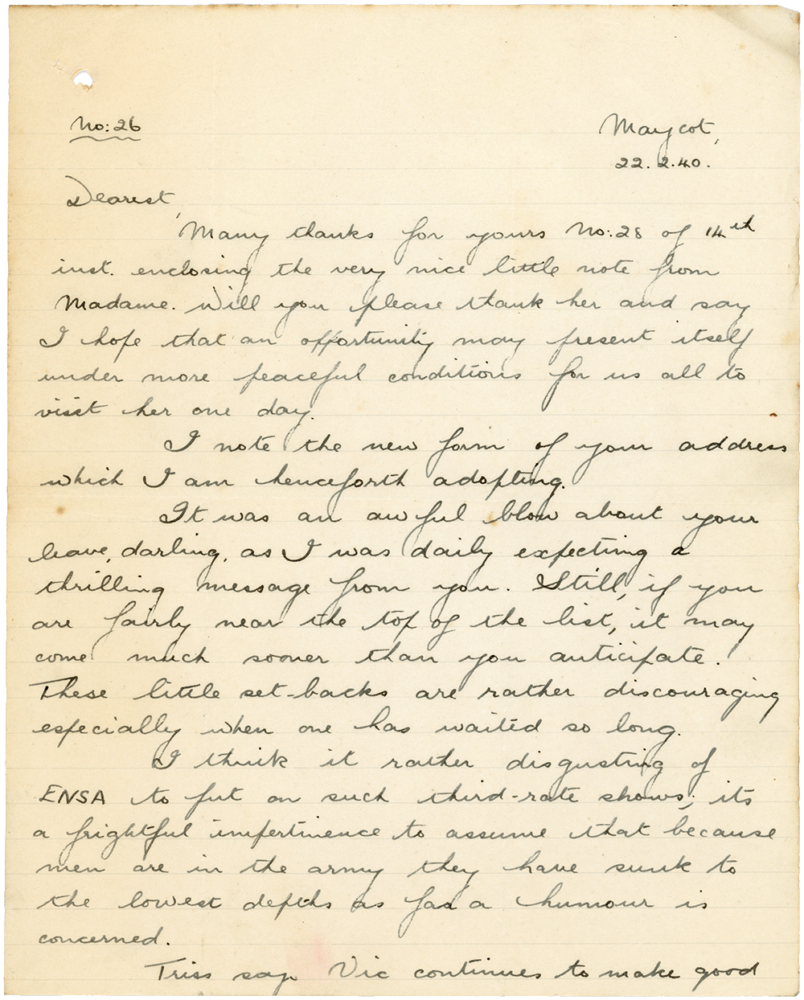 No: 26
Maycot,
22.2.40.
Dearest,
Many thanks for yours No: 28 of 14th
inst. enclosing the very nice little note from
Madame. Will you please thank her and say
I hope that an opportunity may present itself
under more peaceful conditions for us all to
visit her one day.
I note the new form of your address
which I am henceforth adopting.
It was an awful blow about your
leave, darling, as I was daily expecting a
thrilling message from you. Still, if you
are fairly near the top of the list, it may
come much sooner than you anticipate.
These little set-backs are rather discouraging
especially when one has waited so long.
I think it rather disgusting of
ENSA to put on such third-rate shows; its
a frightful impertinence to assume that because
men are in the army they have sunk to
the lowest depths as far a humour is
concerned.
Triss says Vic continues to make good